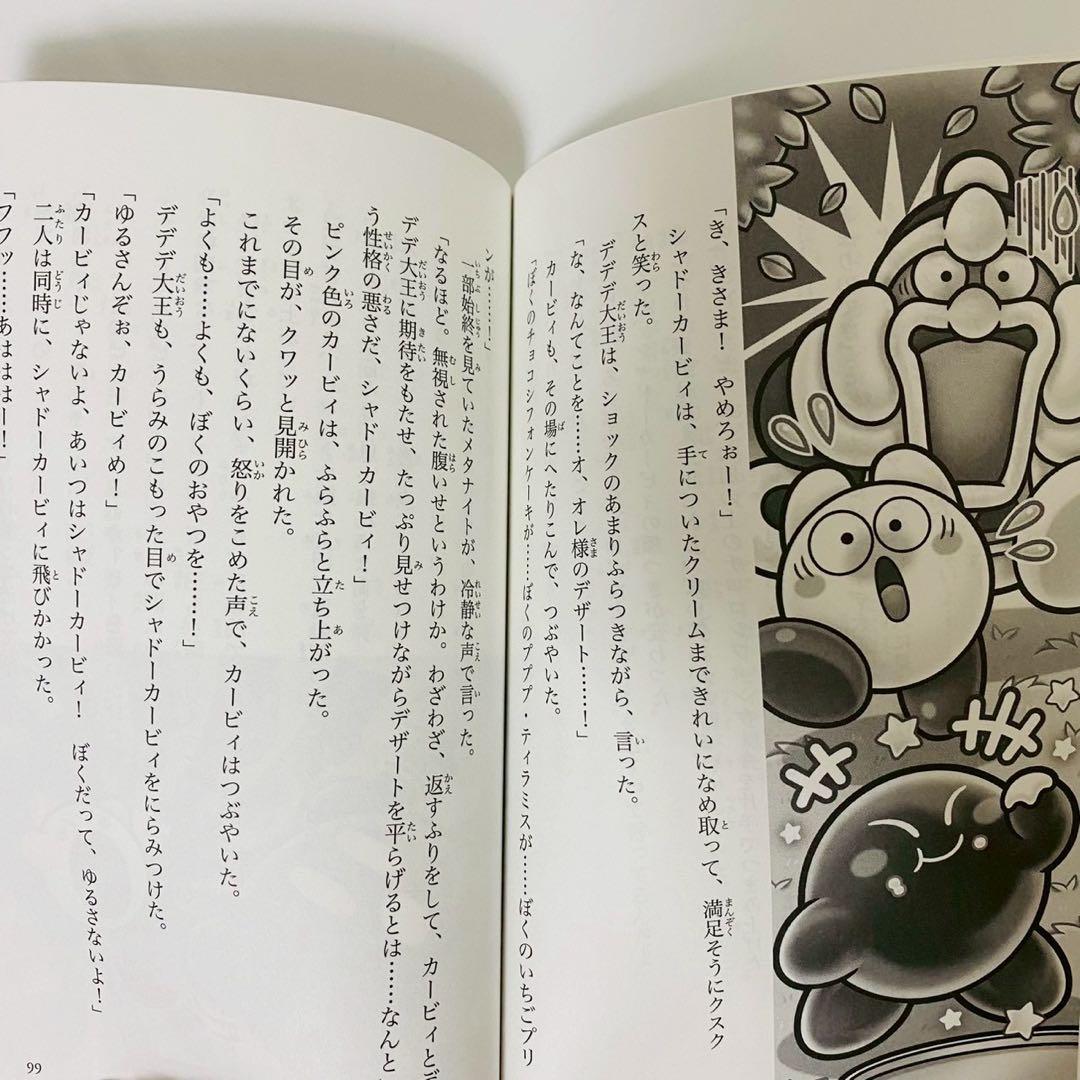 「き、きさま！　やめろぉー！」
シャドーカービィは、手についたクリームまできれいになめ取って、満足そうにクスク
スと笑った。
デデデ大王は、ショックのあまりふらつきながら、言った。
「な、なんてことを……オ、オレ様のデザート………！」
カービィも、その場にへたりこんで、つぶやいた。
「ぼくのチョコシフォンケーキが……ぼくのププププ・ティラミスが……ぼくのいちごプリ
ンが……！」
一部始終を見ていたメタナイトが、冷静な声で言った。
「なるほど。無視された腹いせというわけか。わざわざ、返すふりをして、カービィと
デデデ大王に期待をもたせ、たっぷり見せつけながらデザートを平らげるとは……なんと
う性格の悪さだ、シャドーカービィ！」
ピンク色のカービィは、ふらふらと立ち上がった。
その目が、クワッと見開かれた。
これまでにないくらい、怒りをこめた声で、カービィはつぶやいた。
「よくも……よくも、ぼくのおやつを………！」
デデデ大王も、うらみのこもった目でシャドーカービィをにらみつけた。
「ゆるさんぞぉ、カービィめ！」
「カービィじゃないよ、あいつはシャドーカービィ！　ぼくだって、ゆるさないよ！」
二人は同時に、シャドーカービィに飛びかかった。
「フフッ……あはははー！」
99